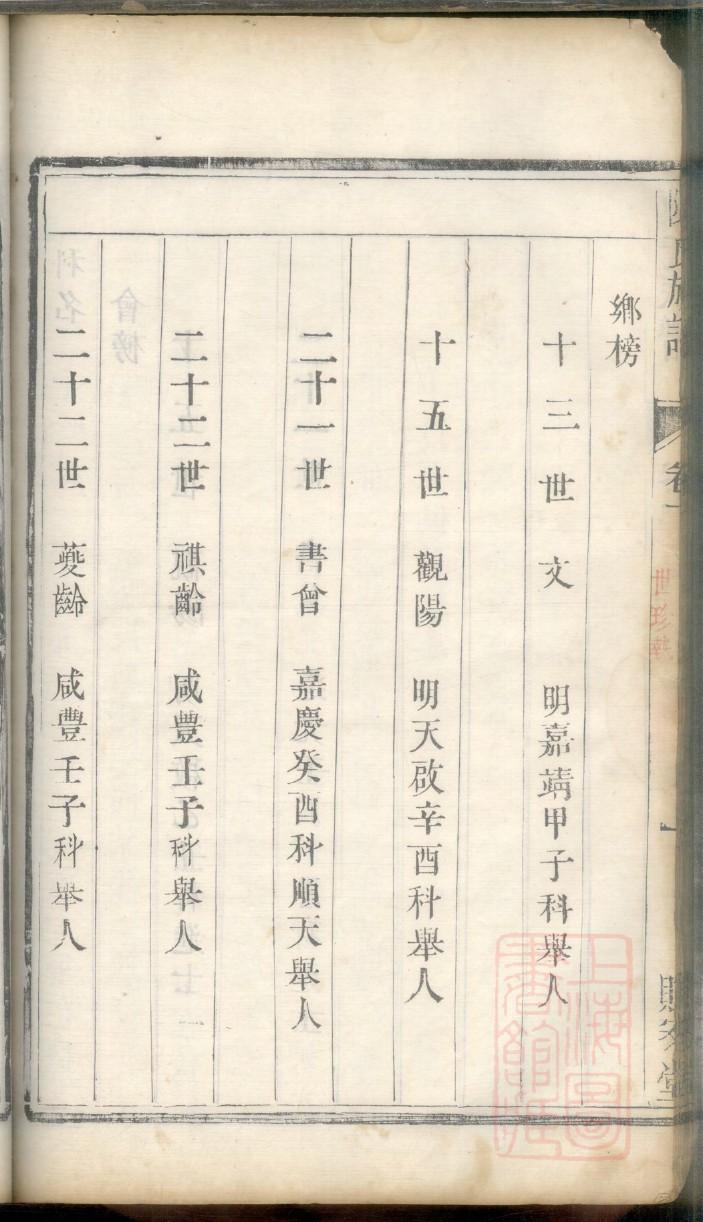 鄉榜
十三世 文 明嘉靖甲子科舉人
十五世 觀陽 明天啟辛酉科舉人
二十一世 書曾 嘉慶癸酉科順天舉人
二十二世 祺齡 咸豐壬子科舉人
二十二世 夔齡 咸豐壬子科舉人
氏族譜 卷一
一
堂
上海圖書館藏